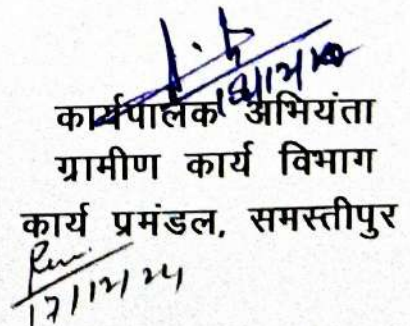 कार्यपालक अभियंता
ग्रामीण कार्य विभाग
कार्य प्रमंडल, समस्तीपुर
17/12/24